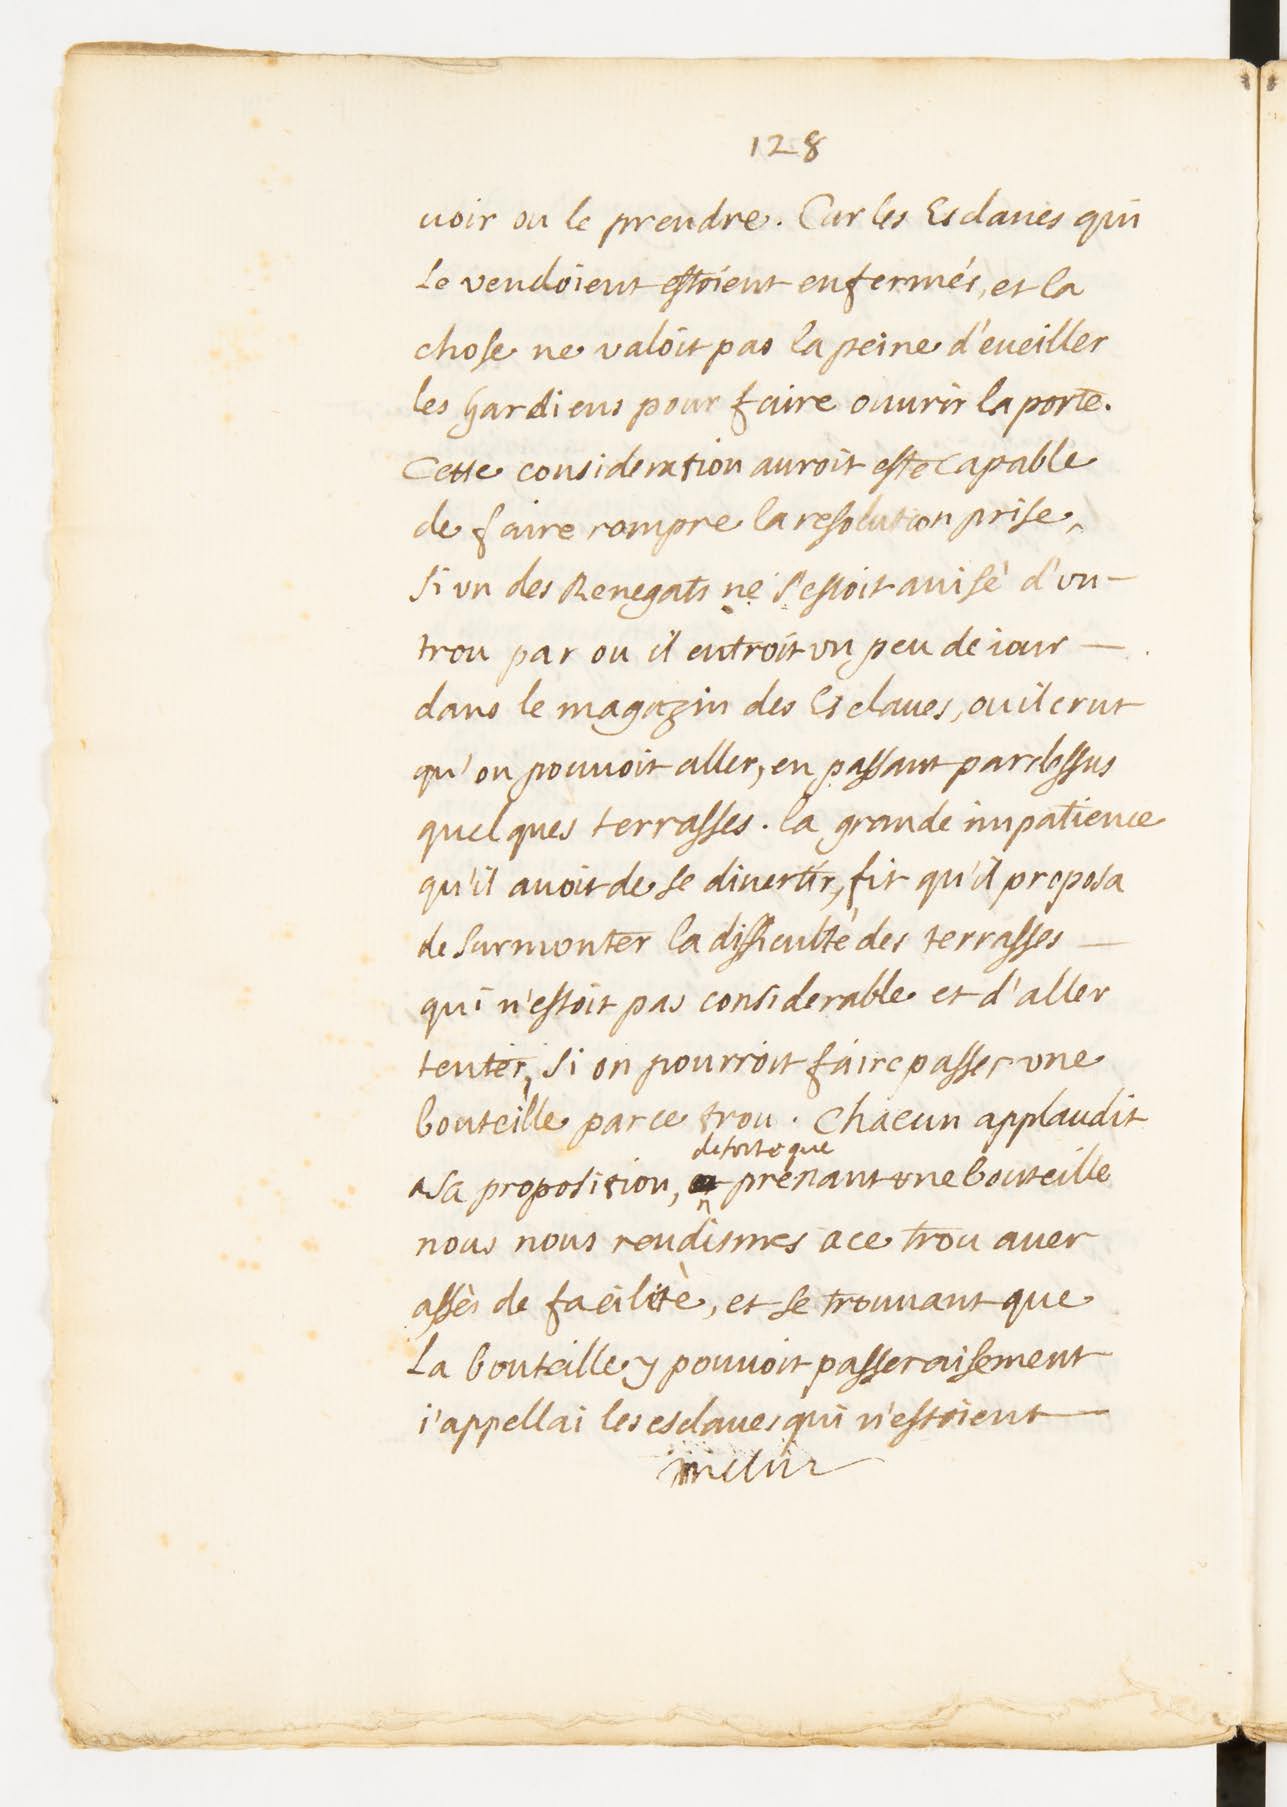 128
uoir ou le prendre. Car les Esclaues qui
le vendoient estoient enfermés, et la
chose ne valoit pas la peine d'eueiller
les gardiens pour faire ouurir la porte.
Cette consideration auroit esté capable
de faire rompre la resolution prise,
si vn des Renegats ne s'estoit auisé d'vn
trou par ou il entroit vn peu de iour
dans le magazin des Esclaues, ou il crut
qu'on pouuoit aller, en passant pardessus
quelques terrasses. la grande impatience
qu'il auoit de se diuertir, fit qu'il proposa
de surmonter la difficulté des terrasses
qui n'estoit pas considerable et d'aller
tenter, si on pourroit faire passer vne
bouteille par ce trou. Chacun applaudit
de sorte que
a sa proposition, prenant vne bouteille
nous nous rendismes a ce trou auec
assès de facilité, et se trouuant que
la bouteille y pouuoit passer aisement
i'appellai les esclaues qui n'estoient